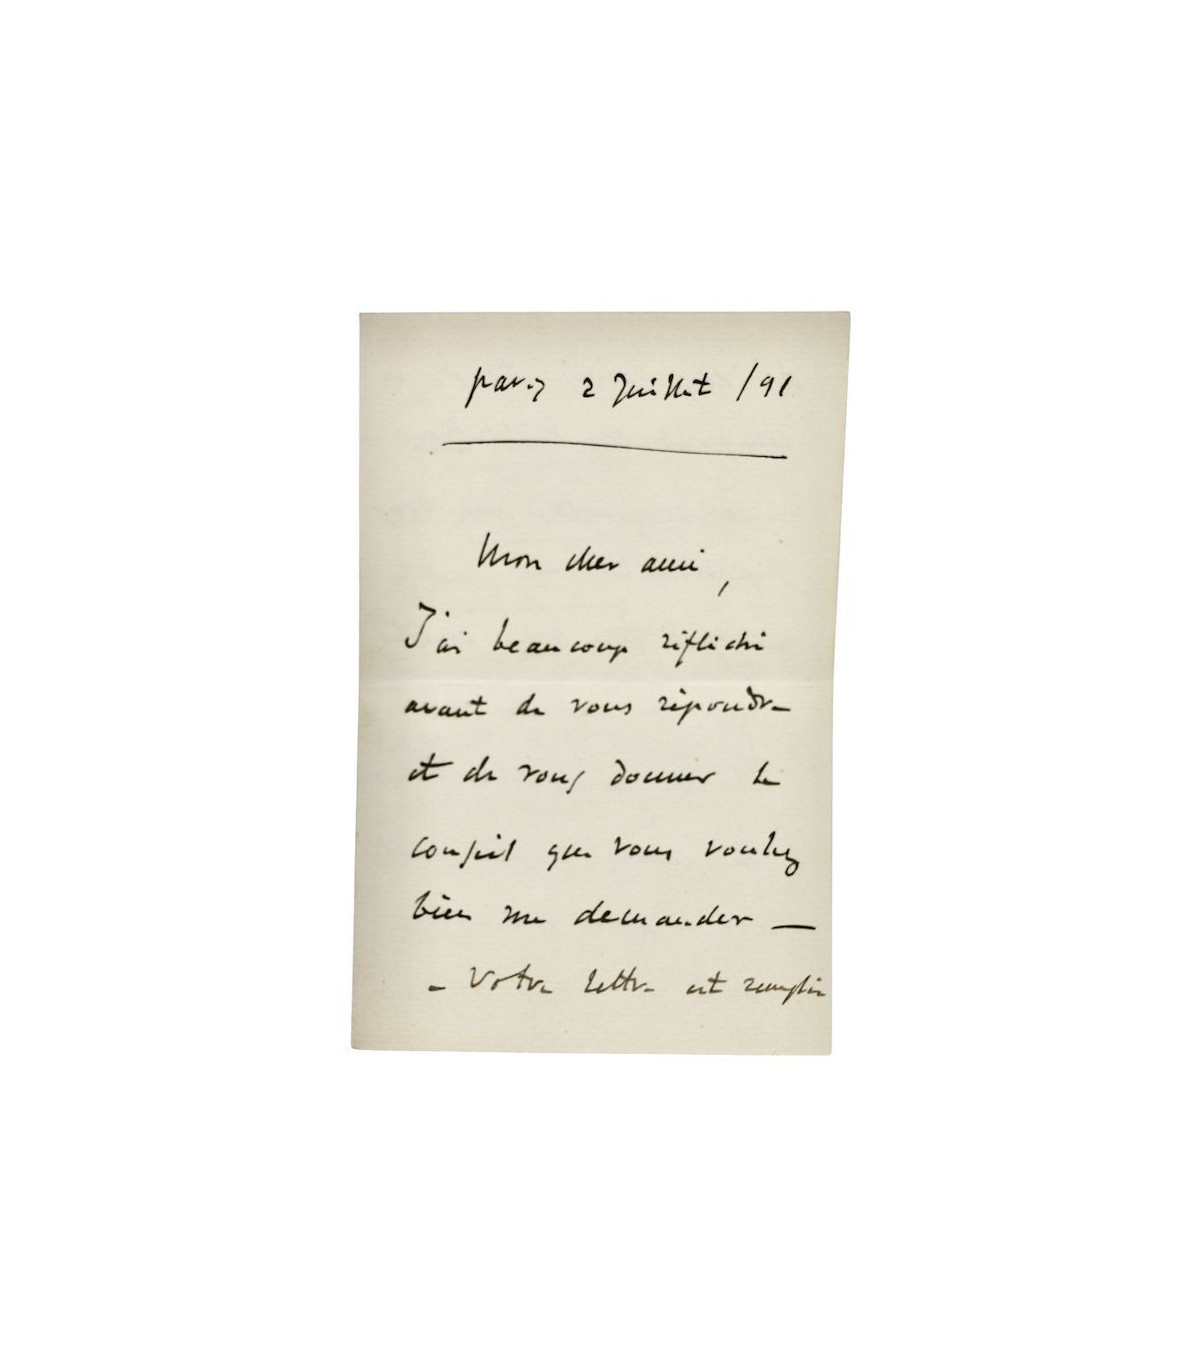 Paris 2 Juillet /91
Mon cher ami,
J'ai beaucoup réfléchi
avant de vous répondre
et de vous donner le
conseil que vous voulez
bien me demander —
- Votre lettre est remplie